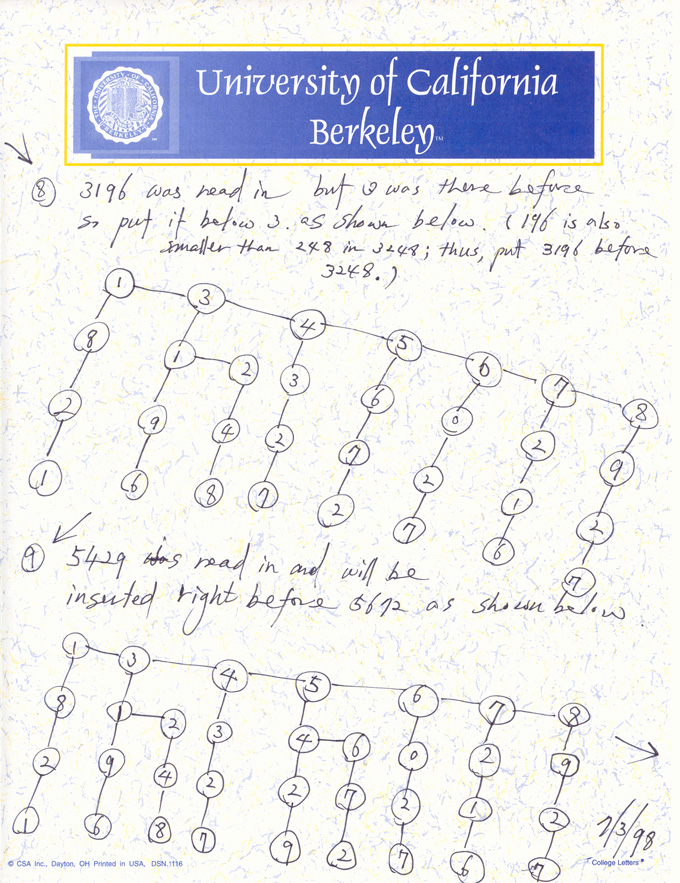 University of California
Berkeley™
⑧ 3196 was read in but 3 was there before
so put it below 3. as shown below. (196 is also
smaller than 248 in 3248; thus, put 3196 before
3248.)
1 3 4 5 6 7 8
8 1 2 3 6 0 2 9
2 9 4 2 7 2 1 2
1 6 8 7 2 7 6 7
⑨ 5429 was read in and will be
inserted right before 5672 as shown below.
1 3 4 5 6 7 8
8 1 2 3 4 6 0 2 9
2 9 4 2 2 7 2 1 2
1 6 8 7 9 2 7 6 7
7/3/98
© CSA Inc., Dayton, OH Printed in USA, DSN.1116
College Letters®